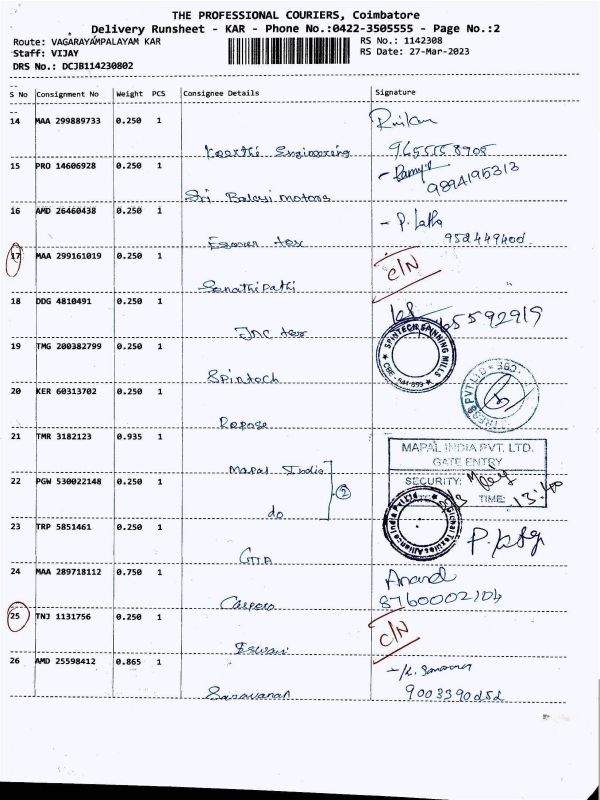 THE PROFESSIONAL COURIERS, Coimbatore
Delivery Runsheet - KAR - Phone No.:0422-3505555 - Page No.:2
Route: VAGARAYAMPALAYAM KAR
RS No.: 1142308
Staff: VIJAY
RS Date: 27-Mar-2023
DRS No.: DCJB114230802
S No Consignment No Weight PCS Consignee Details Signature
14 MAA 299889733 0.250 1
Keerthi Engineering
15 PRO 14606928 0.250 1
Sri Balaji motors
9894195313
16 AMD 26460438 0.250 1
- P. Latha
tex
17 MAA 299161019 0.250 1
C/N
Senathipathi
18 DDG 4810491 0.250 1
JNC tex
19 TMG 200382799 0.250 1
SPINTECH SPINNING MILLS
Spintech
20 KER 60313702 0.250 1
PVT LTD
Repose
21 TMR 3182123 0.935 1
MAPAL INDIA PVT. LTD.
GATE ENTRY
Mapal India
22 PGW 530022148 0.250 1
SECURITY:
2
DATE
TIME: 13.40
do
23 TRP 5851461 0.250 1
Global Textiles Alliance India Pvt Ltd
GTA
24 MAA 289718112 0.750 1
Anand
8760002104
25 TNJ 1131756 0.250 1
C/N
Eswari
26 AMD 25598412 0.865 1
Saravanan
9003390252